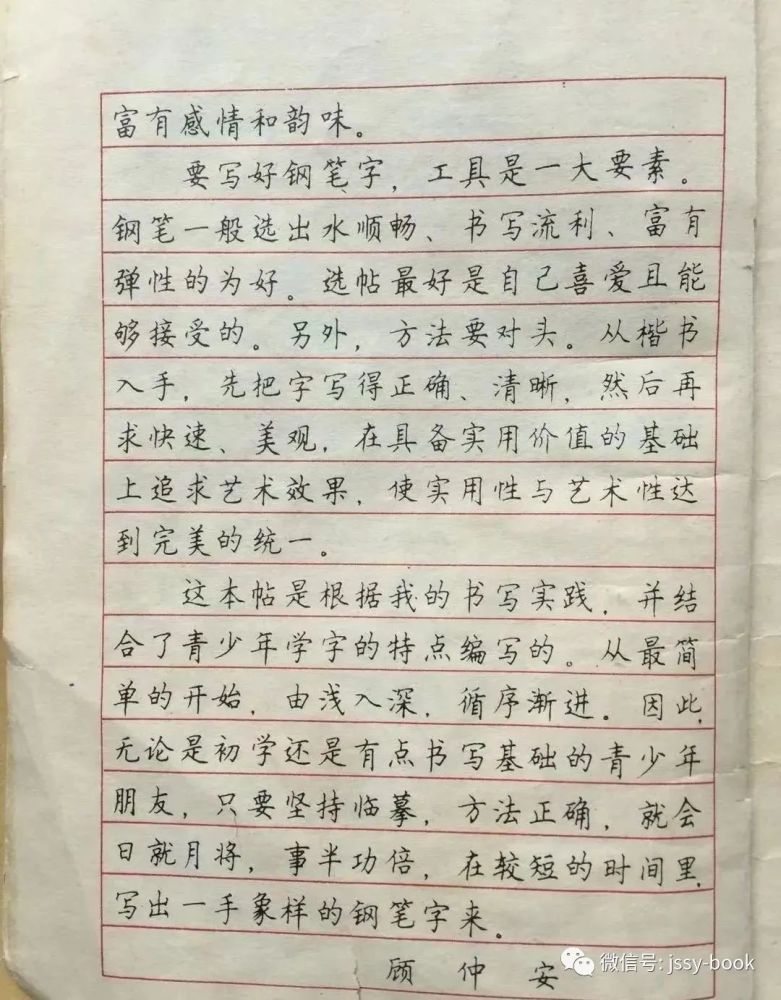 富有感情和韵味。
要写好钢笔字，工具是一大要素。
钢笔一般选出水顺畅、书写流利、富有
弹性的为好。选帖最好是自己喜爱且能
够接受的。另外，方法要对头。从楷书
入手，先把字写得正确、清晰，然后再
求快速、美观，在具备实用价值的基础
上追求艺术效果，使实用性与艺术性达
到完美的统一。
这本帖是根据我的书写实践，并结
合了青少年学字的特点编写的。从最简
单的开始，由浅入深，循序渐进。因此，
无论是初学还是有点书写基础的青少年
朋友，只要坚持临摹，方法正确，就会
日就月将，事半功倍，在较短的时间里，
写出一手象样的钢笔字来。
顾仲安
微信号: jssy-book